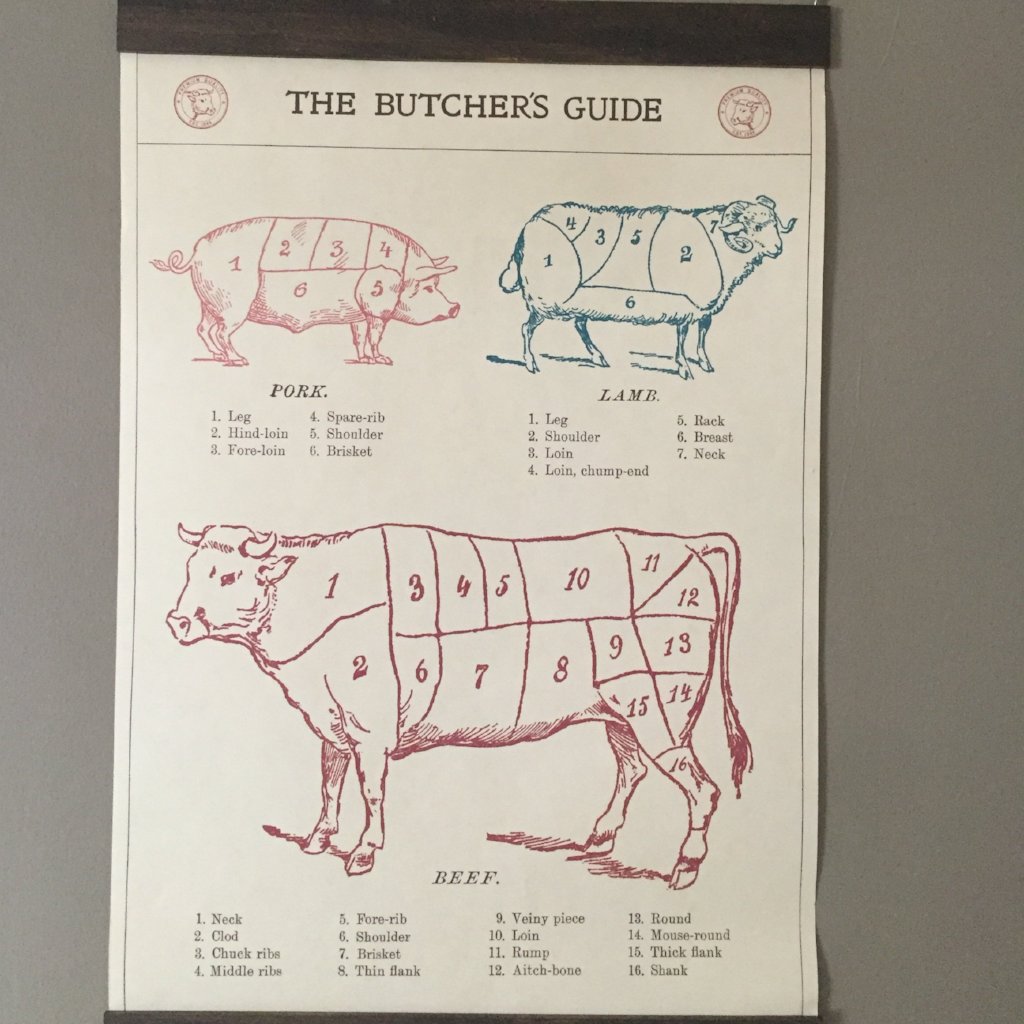 PREMIUM QUALITY
THE BUTCHER'S GUIDE
PREMIUM QUALITY
1 2 3 4 5 6
1 2 3 4 5 6 7
PORK.
1. Leg
2. Hind-loin
3. Fore-loin
4. Spare-rib
5. Shoulder
6. Brisket
LAMB.
1. Leg
2. Shoulder
3. Loin
4. Loin, chump-end
5. Rack
6. Breast
7. Neck
1 3 4 5 10 11 12
2 6 7 8 9 13
15 14
16
BEEF.
1. Neck
2. Clod
3. Chuck ribs
4. Middle ribs
5. Fore-rib
6. Shoulder
7. Brisket
8. Thin flank
9. Veiny piece
10. Loin
11. Rump
12. Aitch-bone
13. Round
14. Mouse-round
15. Thick flank
16. Shank